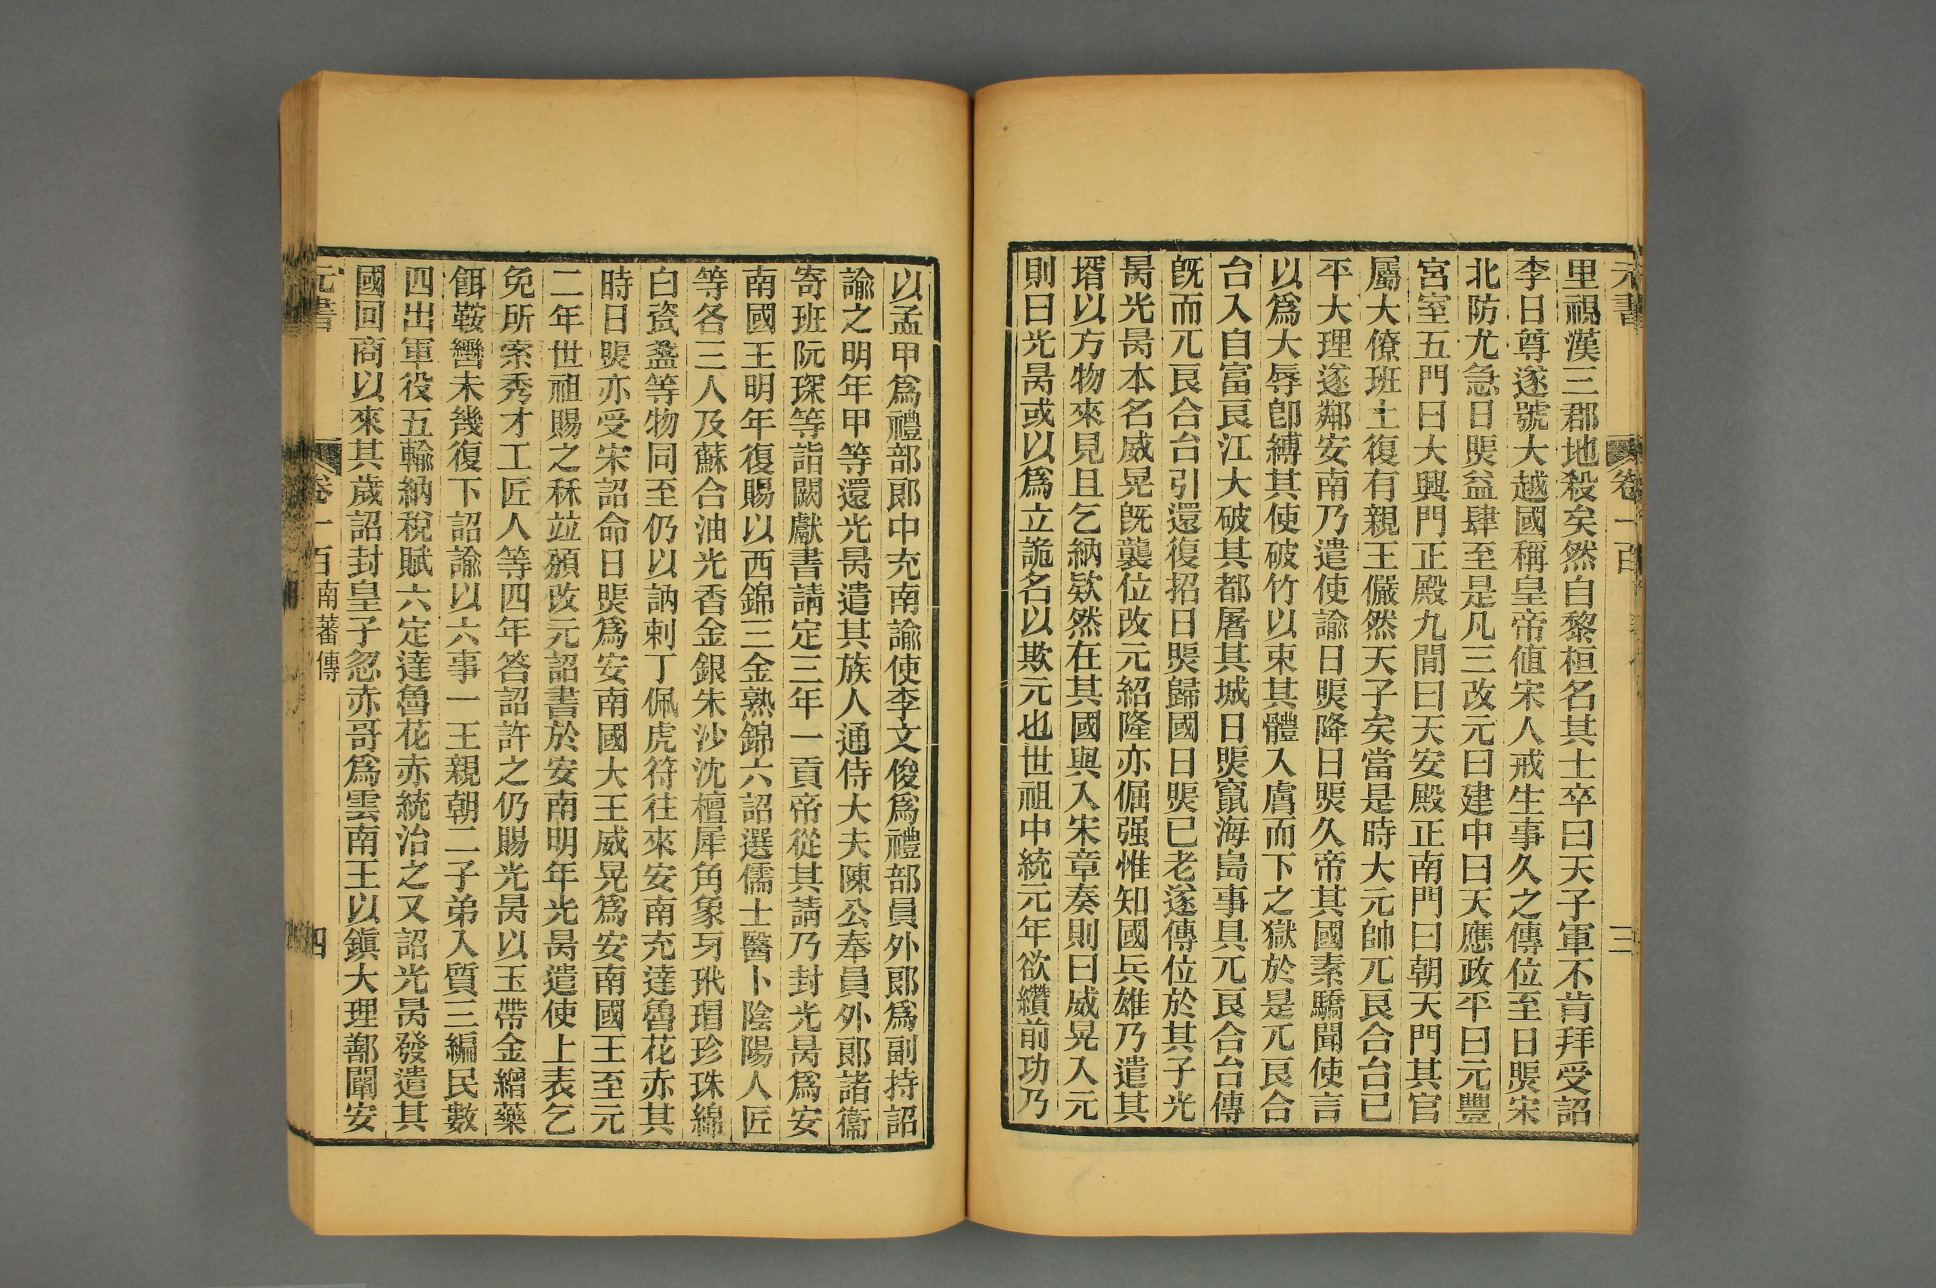 元書
卷一百
三
里視漢三郡地殺矣然自黎桓名其士卒曰天子軍不肯拜受詔
李日尊遂號大越國稱皇帝值宋人戒生事久之傳位至日煚宋
北防尤急日煚益肆至是凡三改元曰建中曰天應政平曰元豐
宮室五門曰大興門正殿九閒曰天安殿正南門曰朝天門其官
屬大僚班土復有親王儼然天子矣當是時大元帥兀良合台已
平大理遂鄰安南乃遣使諭日煚降日煚久帝其國素驕聞使言
以爲大辱卽縛其使破竹以束其體入膚而下之獄於是兀良合
台入自富良江大破其都屠其城日煚竄海島事具兀良合台傳
旣而兀良合台引還復招日煚歸國日煚已老遂傳位於其子光
昺光昺本名威晃旣襲位改元紹隆亦倔强惟知國兵雄乃遣其
壻以方物來見且乞納欵然在其國與入宋章奏則曰威晃入元
則曰光昺或以爲立詭名以欺元也世祖中統元年欲纘前功乃
以孟甲爲禮部郞中充南諭使李文俊爲禮部員外郞爲副持詔
諭之明年甲等還光昺遣其族人通侍大夫陳公奉員外郞諸衞
寄班阮琛等詣闕獻書請定三年一貢帝從其請乃封光昺爲安
南國王明年復賜以西錦三金熟錦六詔選儒士醫卜陰陽人匠
等各三人及蘇合油光香金銀朱沙沈檀犀角象牙玳瑁珍珠綿
白瓷盞等物同至仍以訥剌丁佩虎符往來安南充達魯花赤其
時日煚亦受宋詔命日煚爲安南國大王威晃爲安南國王至元
二年世祖賜之秝竝頒改元詔書於安南明年光昺遣使上表乞
免所索秀才工匠人等四年答詔許之仍賜光昺以玉帶金繒藥
餌鞍轡未幾復下詔諭以六事一王親朝二子弟入質三編民數
四出軍役五輸納稅賦六定達魯花赤統治之又詔光昺發遣其
國回商以來其歲詔封皇子忽亦哥爲雲南王以鎭大理鄯闡安
元書
卷一百南蕃傳
四